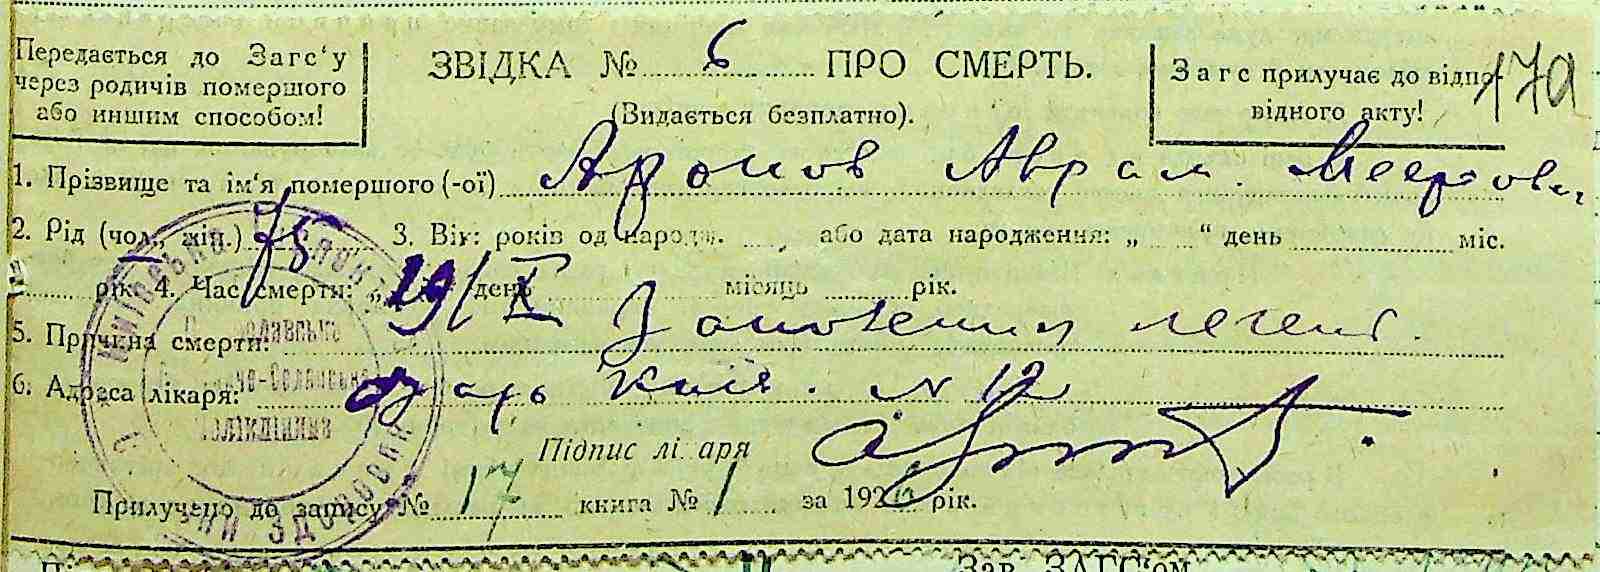 Передається до Загс‘у
через родичів помершого
або иншим способом!
ЗВІДКА № 6 ПРО СМЕРТЬ.
(Видається безплатно).
Загс прилучає до відпо-
відного акту!
17а
1. Прізвище та ім'я помершого (-ої) Аронов Аврам Меерович
2. Рід (чол., жін.) 75 3. Вік: років од народж. , або дата народження: „ “ день міс.
рік. 4. Час смерти: „ 19/X день місяць рік.
5. Причина смерти: Запалення легень.
6. Адреса лікаря: № 12
Підпис лікаря
Прилучено до запису № 17 книга № 1 за 192 рік.
Зав. ЗАГС‘ом